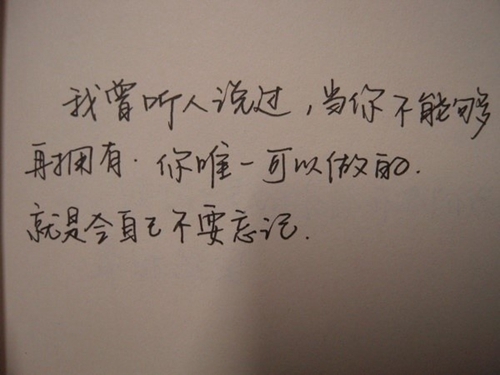 我曾听人说过,当你不能够
再拥有.你唯一可以做的.
就是令自己不要忘记.